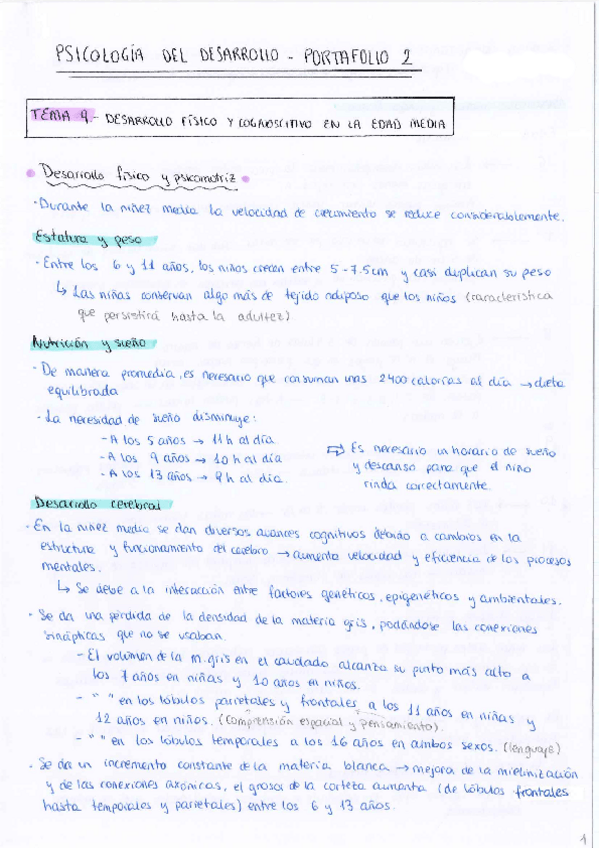 PSICOLOGÍA DEL DESARROLLO - PORTAFOLIO 2
TEMA 9.- DESARROLLO FÍSICO Y COGNOSCITIVO EN LA EDAD MEDIA
Desarrollo físico y psicomotriz
· Durante la niñez media la velocidad de crecimiento se reduce considerablemente.
Estatura y peso
· Entre los 6 y 11 años, los niños crecen entre 5-7.5cm y casi duplican su peso
↳ Las niñas conservan algo más de tejido adiposo que los niños (característica
que persistirá hasta la adultez)
Nutrición y sueño
· De manera promedia, es necesario que consuman unas 2400 calorías al día → dieta
equilibrada
· La necesidad de sueño disminuye:
- A los 5 años → 11h al día
- A los 9 años → 10h al día
- A los 13 años → 9h al día.
⇒ Es necesario un horario de sueño
y descanso para que el niño
rinda correctamente.
Desarrollo cerebral
· En la niñez media se dan diversos avances cognitivos debido a cambios en la
estructura y funcionamiento del cerebro → aumenta velocidad y eficiencia de los procesos
mentales.
↳ Se debe a la interacción entre factores genéticos, epigenéticos y ambientales.
· Se da una pérdida de la densidad de la materia gris, podándose las conexiones
sinápticas que no se usaban.
- El volumen de la m.gris en el caudado alcanza su punto más alto a
los 7 años en niñas y 10 años en niños.
- " " en los lóbulos parietales y frontales a los 11 años en niñas y
12 años en niños. (comprensión espacial y pensamiento).
- " " en los lóbulos temporales a los 16 años en ambos sexos. (lenguaje)
· Se da un incremento constante de la materia blanca → mejora de la mielinización
y de las conexiones axónicas, el grosor de la corteza aumenta (de lóbulos frontales
hasta temporales y parietales) entre los 6 y 13 años.
1